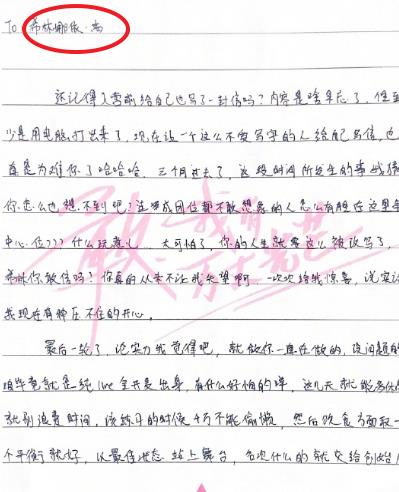 To 希林娜依·高
还记得入营前给自己也写了一封信吗？内容是啥早忘了，但至
少是用电脑打出来了，现在让一个这么不爱写字的人给自己写信，也
真是为难你了哈哈哈。三个月过去了，这段时间所发生的事
你怎么也想不到吧？连成团位都不敢想象的人怎么有胆在这里争
中心位？？？什么玩意儿 太可怕了，你的人生就要这么被改写了，
希林你敢信吗？你真的从来不让我失望啊 一次次给我惊喜，说实话
我现在有种压不住的开心。
最后一轮了，论实力我觉得吧，就做你一直在做的，没问题的
咱毕竟就是纯live全开麦出身，有什么好怕的嘛，这几天就
就别浪费时间，该练习的时候千万不能偷懒，然后饮食方面取一
个平衡就好，以最佳状态站上舞台，名次什么的就交给创始
敢
我有
万丈光芒